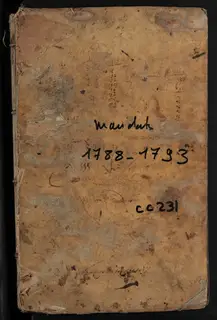 mandats
1788-1793
CC231